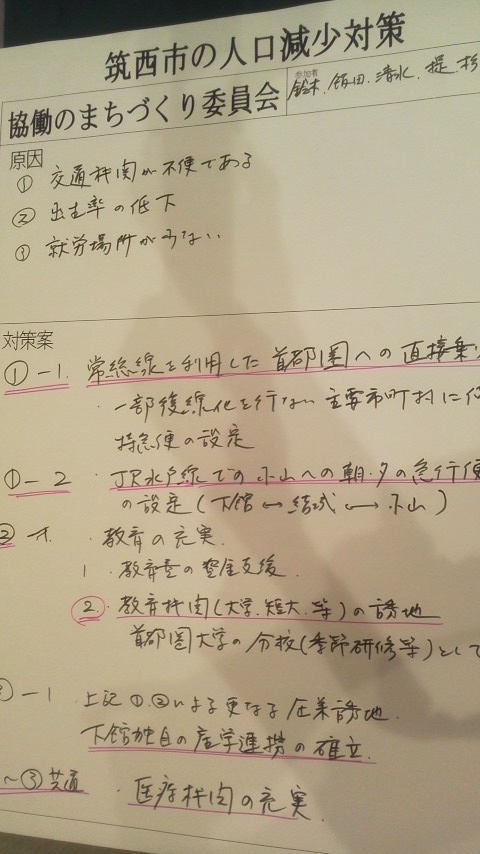 筑西市の人口減少対策
協働のまちづくり委員会
参加者
鈴木、飯田、清水、堤、杉
原因
① 交通機関が不便である
② 出生率の低下
③ 就労場所が少ない
対策案
①-1. 常総線を利用した首都圏への直接乗り
・一部複線化を行ない主要市町村に
特急便の設定
①-2 ・JR水戸線での小山への朝・夕の急行便
の設定(下館↔結城↔小山)
② ・教育の充実
1 ・教育費の
②・教育機関(大学、短大、等)の誘地
首都圏大学の分校(季節研修等)として
-1 上記①、②による更なる企業誘地、
下館独自の産学連携の確立、
~③共通 ・医療機関の充実、